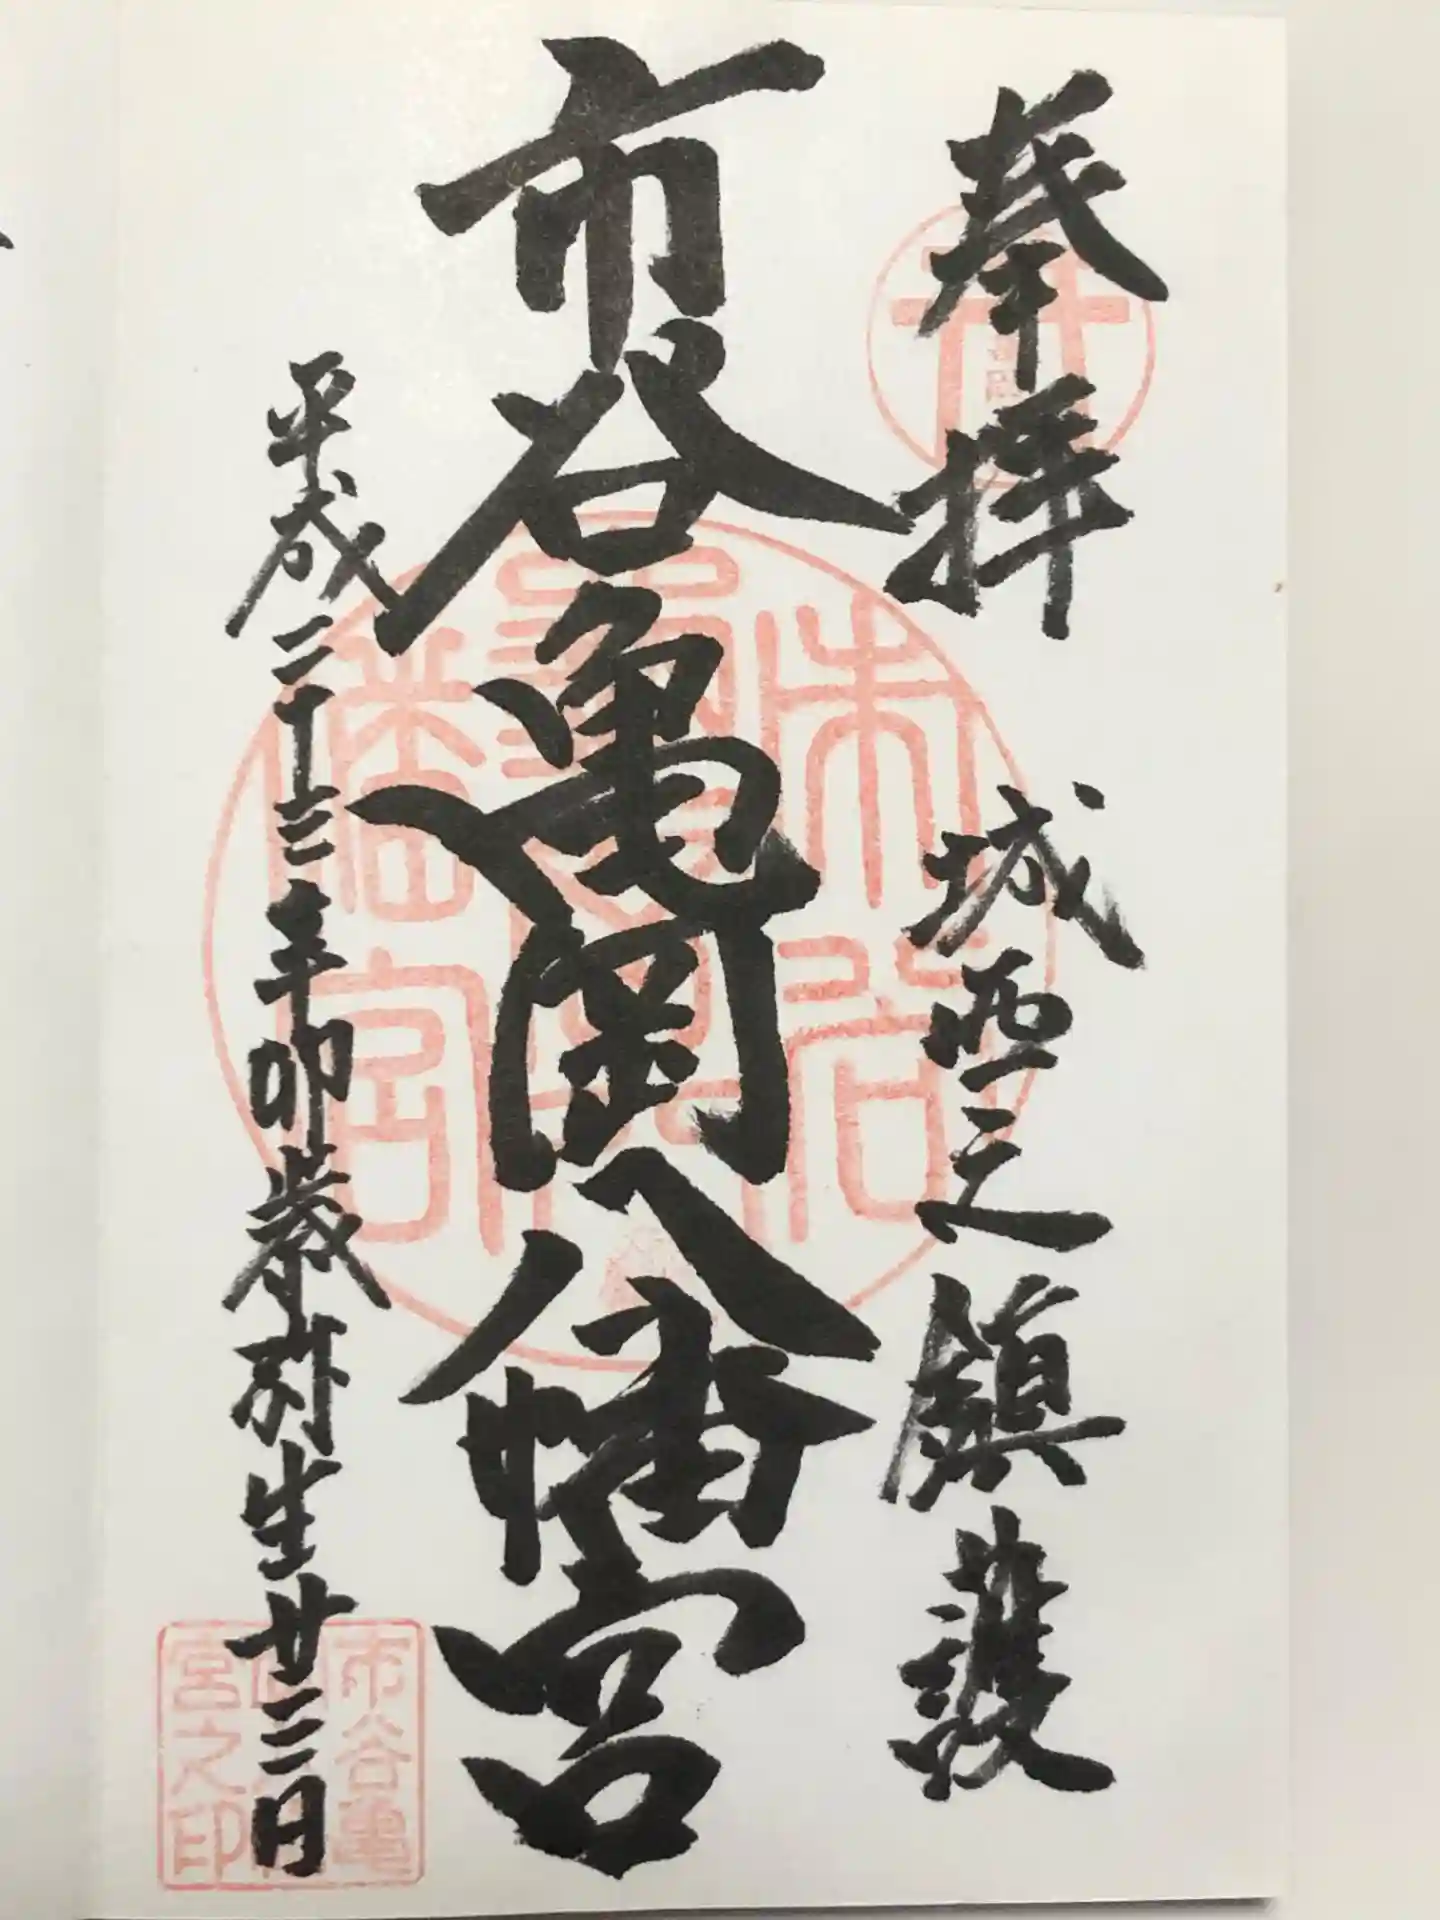 奉拝 城西之鎮護
市谷亀岡八幡宮
平成二十三年卯歳弥生廿三日
市谷亀岡八幡宮
市谷亀
岡八幡
宮之印